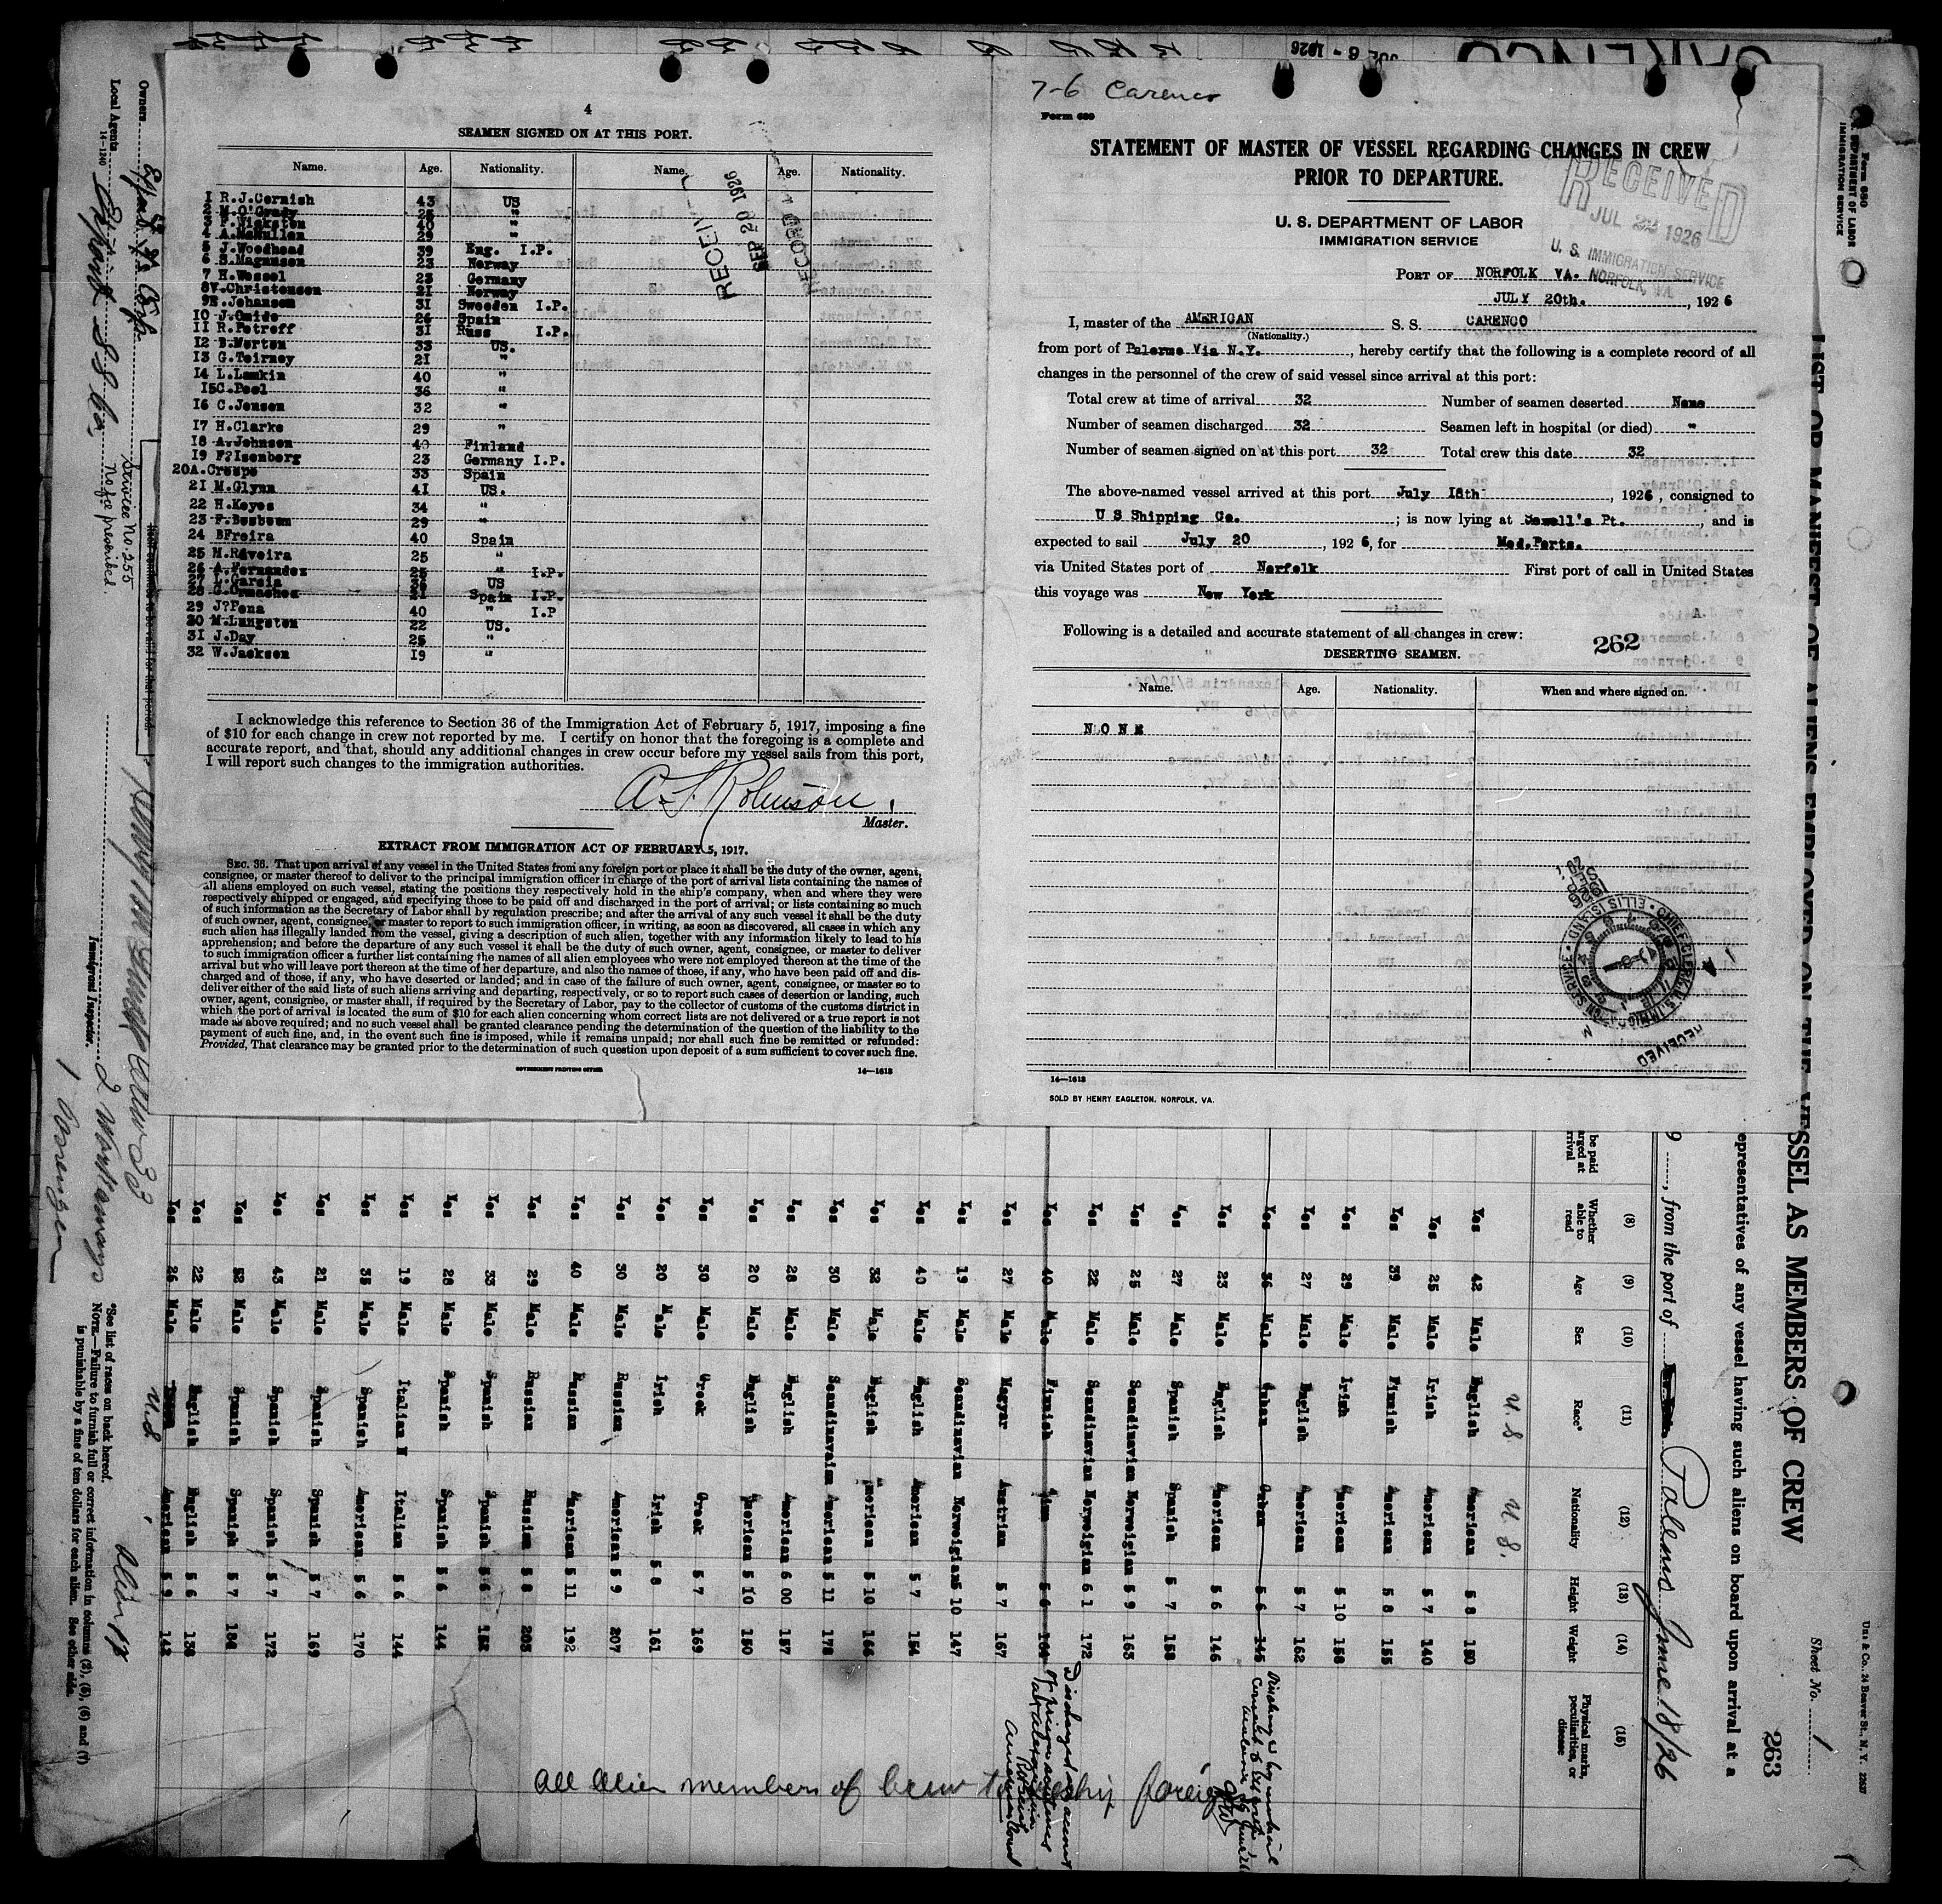 7-6 Carenco
4
SEAMEN SIGNED ON AT THIS PORT.
Name. Age. Nationality. Name. Age. Nationality.
1 R.J.Cornish 43 US
2 M.O'Grady 25 "
3 P.Wicksten 40 "
4 A.McMullen 29 "
5 J.Woodhead 39 Eng. I.P.
6 S.Magnusen 23 Norway
7 H.Wessel 23 Germany
8 V.Christensen 21 Norway
9 E.Johansen 31 Sweeden I.P.
10 J.Omide 26 Spain
11 R.Petroff 31 Russ I.P.
12 B.Morton 33 US.
13 G.Teirney 21 "
14 L.Lamkin 40 "
15 C.Peel 36 "
16 C.Jensen 32 "
17 H.Clarke 29 "
18 A.Johnson 40 Finland
19 F?Isenberg 23 Germany I.P.
20 A.Crespo 33 Spain
21 M.Glynn 41 US.
22 H.Keyes 34 "
23 F.Bosbeum 29 "
24 BFreira 40 Spain
25 M.Raveira 25 "
26 A.Fernandez 25 " I.P.
27 L.Garcia US
28 G.Ormachea 21 Spain I.P.
29 J?Pena 40 " I.P
30 M.Langston 22 US.
31 J.Day 25 "
32 W.Jackson 19 "
RECEIV
SEP 20 1926
RECORD
I acknowledge this reference to Section 36 of the Immigration Act of February 5, 1917, imposing a fine
of $10 for each change in crew not reported by me. I certify on honor that the foregoing is a complete and
accurate report, and that, should any additional changes in crew occur before my vessel sails from this port,
I will report such changes to the immigration authorities.
A. L. Robinson.
Master.
EXTRACT FROM IMMIGRATION ACT OF FEBRUARY 5, 1917.
SEC. 36. That upon arrival of any vessel in the United States from any foreign port or place it shall be the duty of the owner, agent,
consignee, or master thereof to deliver to the principal immigration officer in charge of the port of arrival lists containing the names of
all aliens employed on such vessel, stating the positions they respectively hold in the ship's company, when and where they were
respectively shipped or engaged, and specifying those to be paid off and discharged in the port of arrival; or lists containing so much
of such information as the Secretary of Labor shall by regulation prescribe; and after the arrival of any such vessel it shall be the duty
of such owner, agent, consignee, or master to report to such immigration officer, in writing, as soon as discovered, all cases in which any
such alien has illegally landed from the vessel, giving a description of such alien, together with any information likely to lead to his
apprehension; and before the departure of any such vessel it shall be the duty of such owner, agent, consignee, or master to deliver
to such immigration officer a further list containing the names of all alien employees who were not employed thereon at the time of the
arrival but who will leave port thereon at the time of her departure, and also the names of those, if any, who have been paid off and dis-
charged and of those, if any, who have deserted or landed; and in case of the failure of such owner, agent, consignee, or master so to
deliver either of the said lists of such aliens arriving and departing, respectively, or so to report such cases of desertion or landing, such
owner, agent, consignee, or master shall, if required by the Secretary of Labor, pay to the collector of customs of the customs district in
which the port of arrival is located the sum of $10 for each alien concerning whom correct lists are not delivered or a true report is not
made as above required; and no such vessel shall be granted clearance pending the determination of the question of the liability to the
payment of such fine, and, in the event such fine is imposed, while it remains unpaid; nor shall such fine be remitted or refunded:
Provided, That clearance may be granted prior to the determination of such question upon deposit of a sum sufficient to cover such fine.
GOVERNMENT PRINTING OFFICE
14—1613
Form 689
STATEMENT OF MASTER OF VESSEL REGARDING CHANGES IN CREW
PRIOR TO DEPARTURE.
U. S. DEPARTMENT OF LABOR
IMMIGRATION SERVICE
RECEIVED
JUL 22 1926
U. S. IMMIGRATION SERVICE
NORFOLK, VA.
PORT OF NORFOLK VA.
JULY 20th., 1926
I, master of the AMERICAN S. S. CARENCO
(Nationality.)
from port of Palermo Via N.Y., hereby certify that the following is a complete record of all
changes in the personnel of the crew of said vessel since arrival at this port:
Total crew at time of arrival 32 Number of seamen deserted None
Number of seamen discharged 32 Seamen left in hospital (or died) "
Number of seamen signed on at this port 32 Total crew this date 32
The above-named vessel arrived at this port July 18th, 1926, consigned to
U S Shipping Co.; is now lying at Sewell's Pt., and is
expected to sail July 20, 1926, for Med.Ports.
via United States port of Norfolk First port of call in United States
this voyage was New York
Following is a detailed and accurate statement of all changes in crew:
262
DESERTING SEAMEN.
Name. Age. Nationality. When and where signed on.
NONE
CHIEF CLERK, U.S. IMMIGRATION SERVICE · ELLIS ISLAND
RECEIVED
14—1613
SOLD BY HENRY EAGLETON, NORFOLK, VA.
CARENCO
JUL 6 - 1926
Form 680
U. S. DEPARTMENT OF LABOR
IMMIGRATION SERVICE
LIST OR MANIFEST OF ALIENS EMPLOYED ON THE VESSEL AS MEMBERS OF CREW
Sheet No. 1
263
epresentatives of any vessel having such aliens on board upon arrival at a
, from the port of Palermo June 18/26
(8) (9) (10) (11) (12) (13) (14) (15)
Whether able to read Age Sex Race* Nationality Height Weight Physical marks, peculiarities, or disease
U.S. U.S.
Yes 42 Male English American 5 8 180
Yes 25 Male Irish American 5 7 140
Yes 39 Male Finnish American 5 8 155
Yes 29 Male Irish American 5 10 158
Yes 27 Male English American 5 7 162
Yes 36 Male Cuban Cuban 5 6 145
Yes 23 Male English American 5 6 146
Yes 27 Male Spanish Spanish 5 7 158
Yes 25 Male Scandinavian Norweigian 5 9 163
Yes 22 Male Scandinavian Norweigian 6 1 172
Yes 40 Male Finnish Finn 5 6 164
Yes 27 Male Magyar Austrian 5 7 167
Yes 19 Male Scandinavian Norweigian 5 10 147
Yes 40 Male English American 5 7 154
Yes 32 Male English American 5 10 166
Yes 30 Male Scandinavain American 5 11 178
Yes 28 Male English American 6 00 157
Yes 20 Male English American 5 10 150
Yes 30 Male Greek Greek 5 7 169
Yes 20 Male Irish Irish 5 8 161
Yes 30 Male Russian American 5 9 207
Yes 40 Male Russian American 5 11 192
Yes 29 Male Russian Russian 5 8 205
Yes 33 Male Spanish Spanish 5 6 152
Yes 28 Male Spanish Spanish 5 6 144
Yes 19 Male Italian N Italian 5 6 144
Yes 35 Male Spanish American 5 6 170
Yes 21 Male Spanish Spanish 5 7 169
Yes 43 Male Spanish Spanish 5 7 172
Yes 52 Male Spanish Spanish 5 7 184
Yes 22 Male English English 5 6 138
Yes 26 Male U.S. American 5 9 142
All alien members of crew to reship foreign
Owners
Local Agents Export S S Co.
14-1240
Service No. 255
No fee prescribed.
Immigrant Inspector.
crew 33
2 Workaways
1 Passenger
Alien 17
*See list of races on back hereof.
NOTE.—Failure to furnish full or correct information in columns (2), (5), (6) and (7)
is punishable by a fine of ten dollars for each alien. See other side.